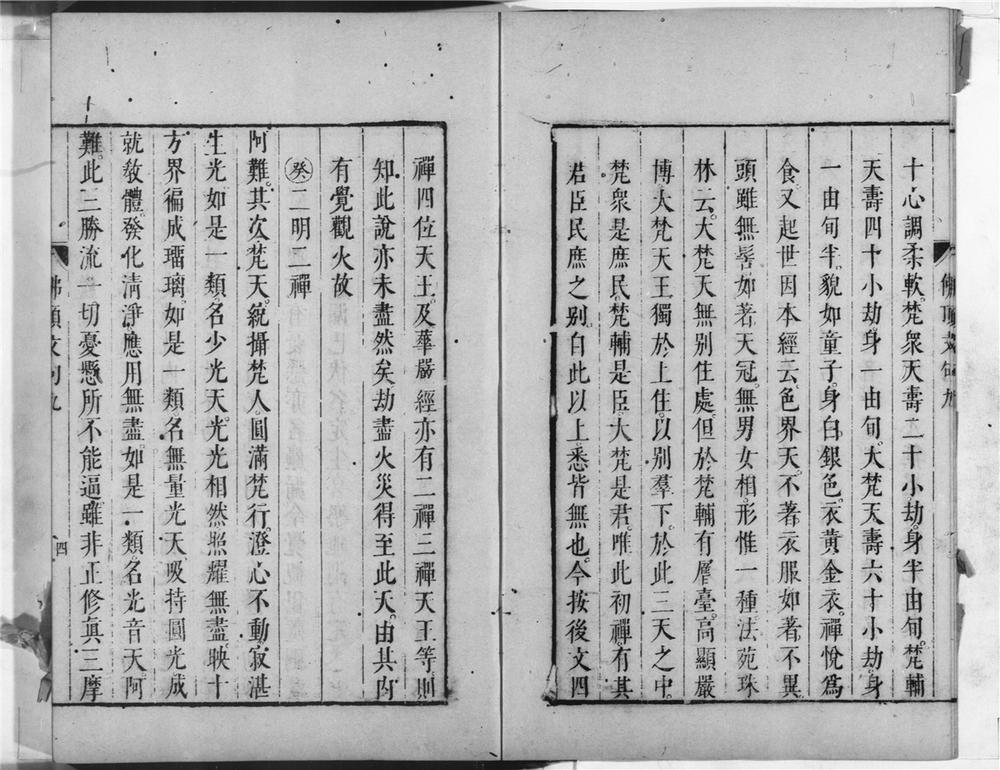 十心調柔軟。梵衆天壽二十小劫。身半由旬。梵輔
天壽四十小劫。身一由旬。大梵天壽六十小劫。身
一由旬半。貌如童子。身白銀色。衣黃金衣。禪悅爲
食。又起世因本經云。色界天。不著衣服如著不異。
頭雖無髻如著天冠。無男女相。形惟一種。法苑珠
林云。大梵天無別住處。但於梵輔有層臺。高顯嚴
博。大梵天王獨於上住。以別羣下。於此三天之中。
梵衆是庶民。梵輔是臣。大梵是君。唯此初禪。有其
君臣民庶之別。自此以上悉皆無也。今按後文四
禪四位天王。及華嚴經。亦有二禪三禪天王等。則
知此說亦未盡然矣。劫盡火災得至此天。由其內
有覺觀火故
癸二明二禪
阿難。其次梵天。統攝梵人。圓滿梵行。澄心不動。寂湛
生光。如是一類。名少光天。光光相然。照耀無盡。映十
方界。徧成瑠璃。如是一類。名無量光天。吸持圓光。成
就教體。發化清淨。應用無盡。如是一類。名光音天。阿
難。此三勝流。一切憂懸所不能逼。雖非正修真三摩
佛頂文句九
四